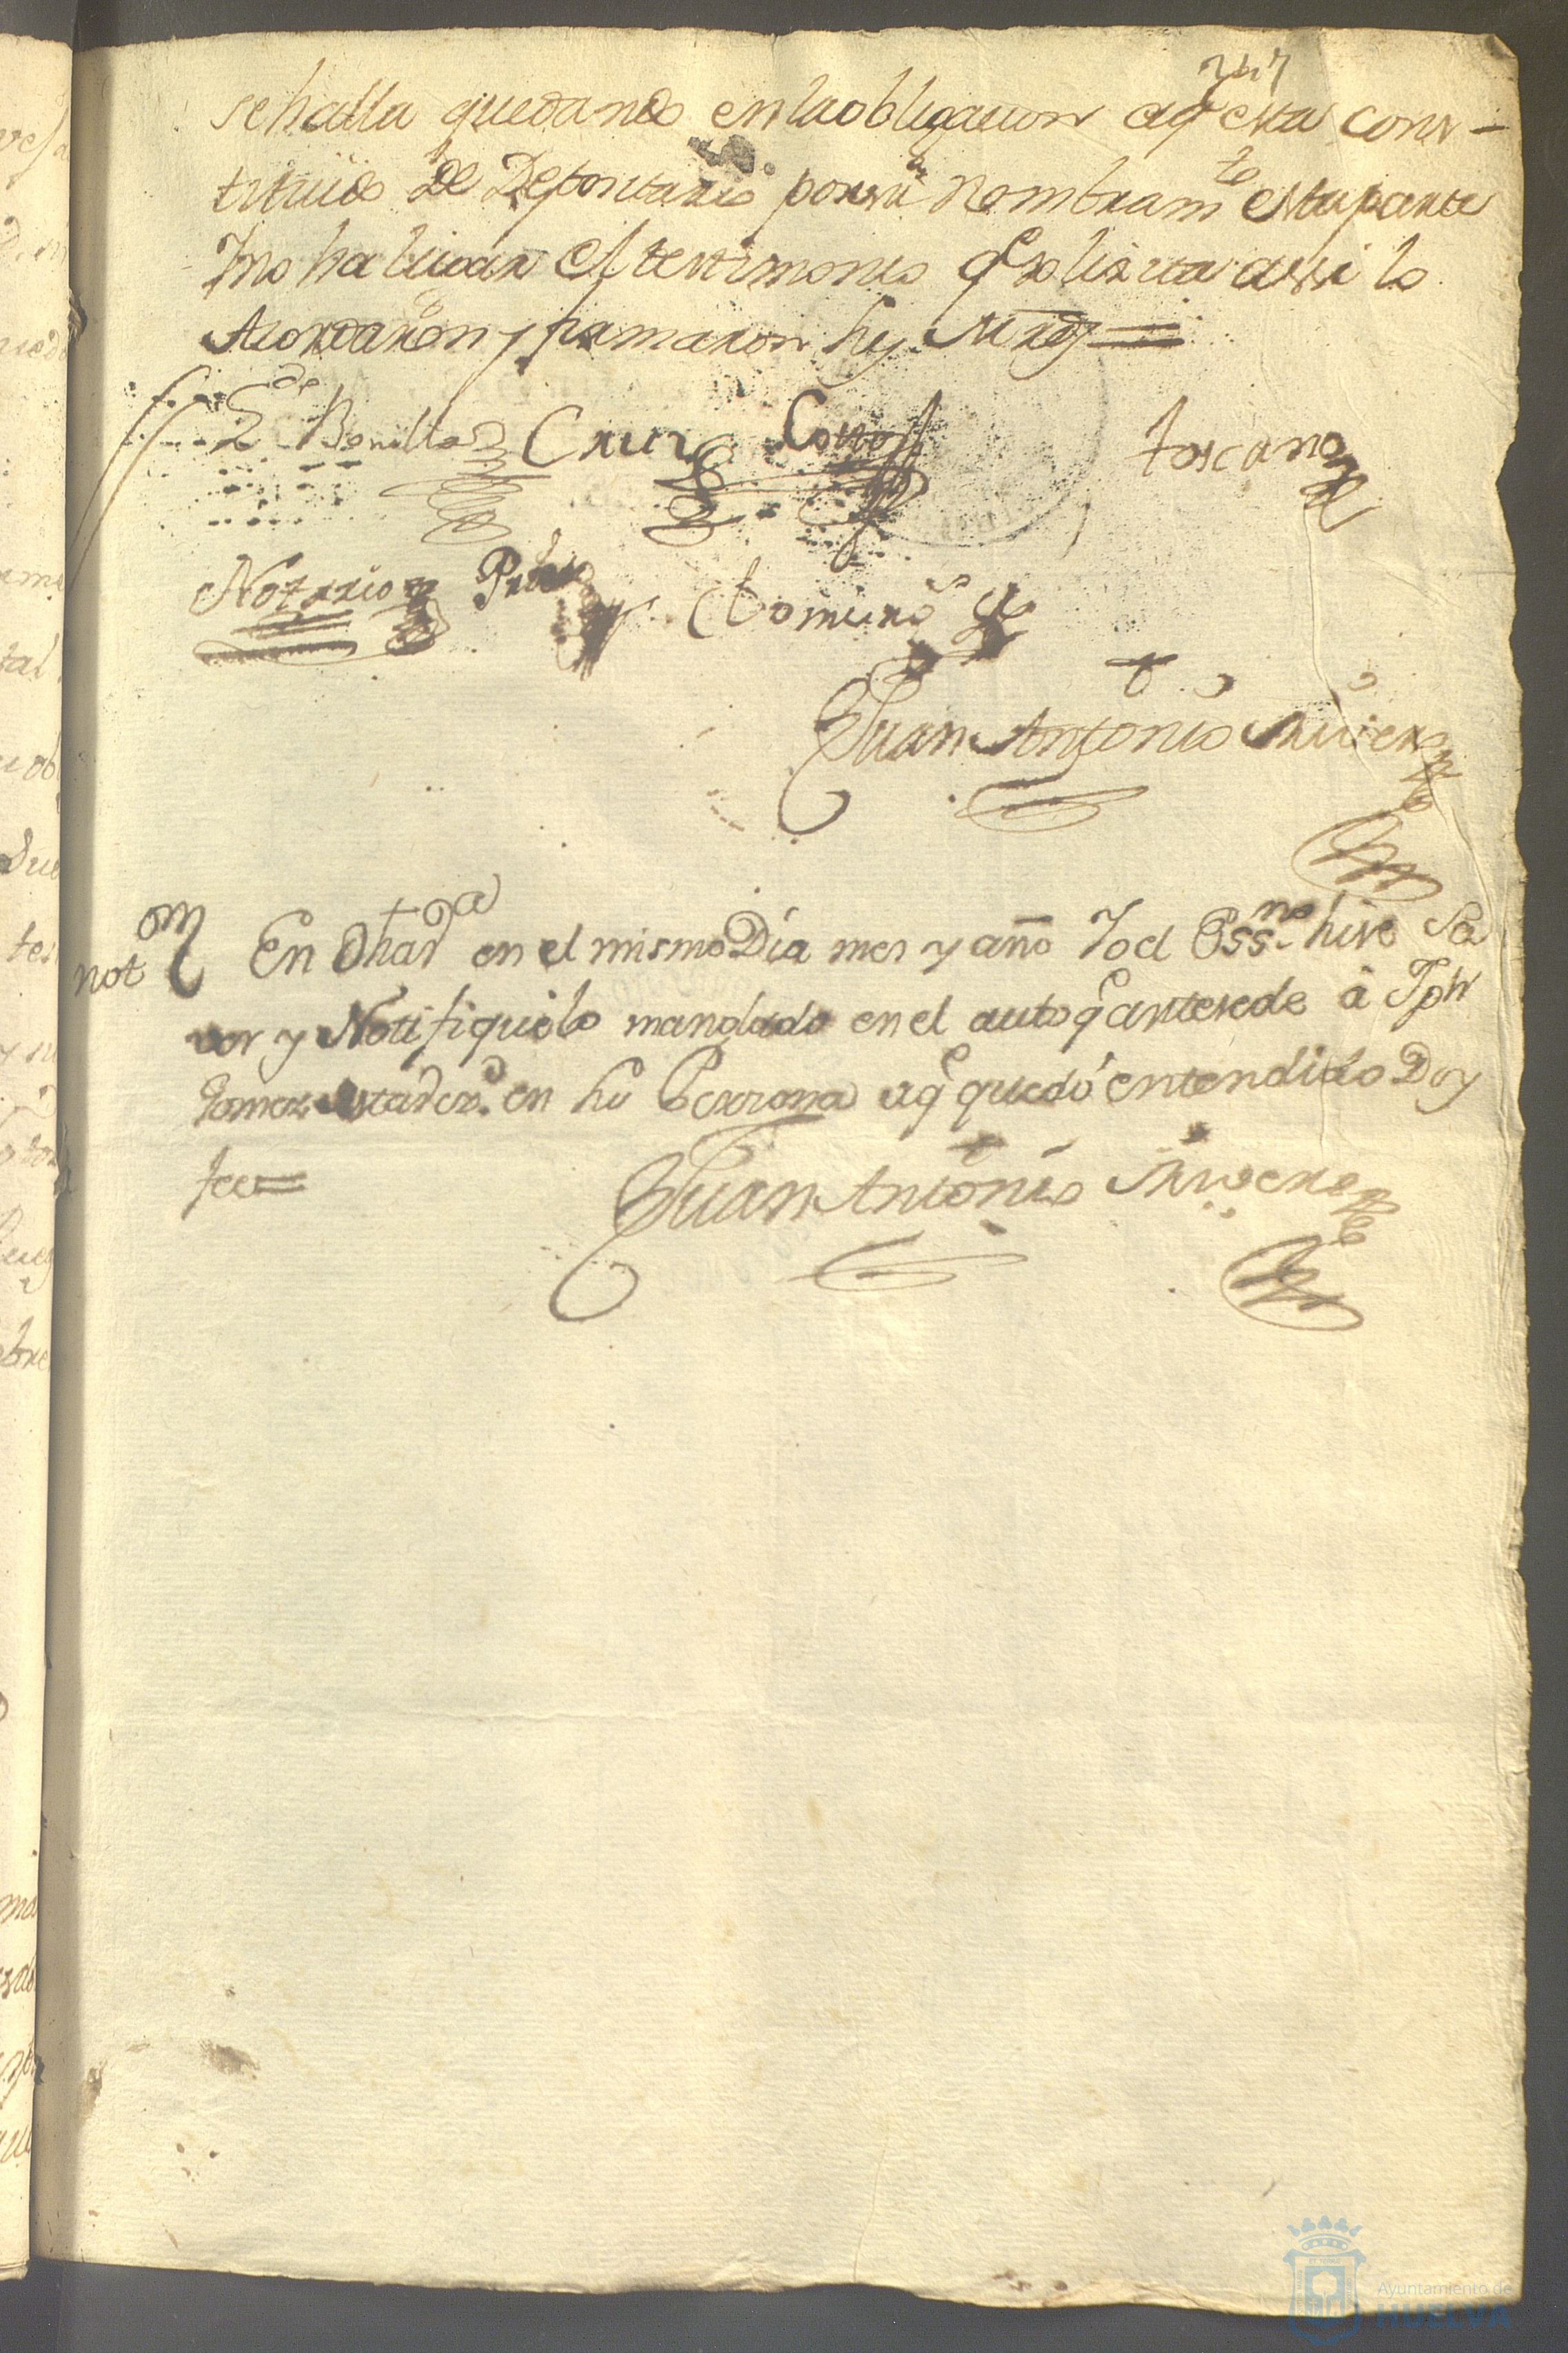 247
se halla quedando en la obligacion aq.e esta cons-
tituido de Depositario por su Nombram.to esta parte
Y no ha lugar el testimonio q.e solisita assi lo
Acordaron y firmaron Sus Mrds =
Bonilla Cruz Toscano
Notario
Juan Antonio Rivera
not on En Dha V.a en el mismo Dia mes y año Yo el Ess.no hise Sa
ver y Notifique lo mandado en el auto q.e antesede â Jph
Gomez en su Perssona aq.e quedó entendido Doy
fee =
Juan Antonio Rivera
Ayuntamiento de
HUELVA